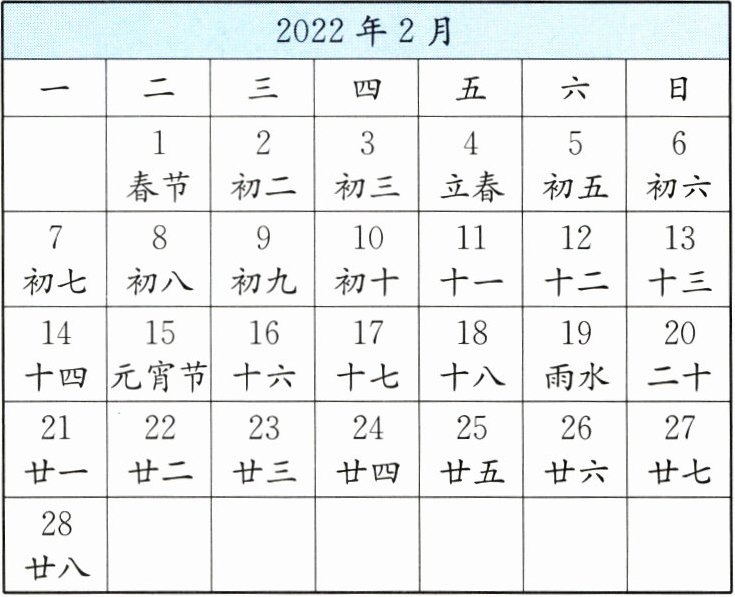 2022 年 2 月
一 二 三 四 五 六 日
1 2 3 4 5 6
春节 初二 初三 立春 初五 初六
7 8 9 10 11 12 13
初七 初八 初九 初十 十一 十二 十三
14 15 16 17 18 19 20
十四 元宵节 十六 十七 十八 雨水 二十
21 22 23 24 25 26 27
廿一 廿二 廿三 廿四 廿五 廿六 廿七
28
廿八